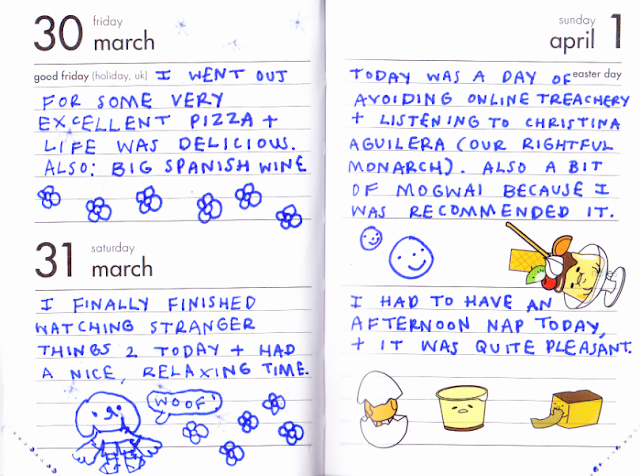 30 friday
march
good friday (holiday, uk) I WENT OUT
FOR SOME VERY
EXCELLENT PIZZA +
LIFE WAS DELICIOUS.
ALSO: BIG SPANISH WINE
31 saturday
march
I FINALLY FINISHED
WATCHING STRANGER
THINGS 2 TODAY + HAD
A NICE, RELAXING TIME.
WOOF!
sunday
april 1
TODAY WAS A DAY OF easter day
AVOIDING ONLINE TREACHERY
+ LISTENING TO CHRISTINA
AGUILERA (OUR RIGHTFUL
MONARCH). ALSO A BIT
OF MOGWAI BECAUSE I
WAS RECOMMENDED IT.
I HAD TO HAVE AN
AFTERNOON NAP TODAY,
+ IT WAS QUITE PLEASANT.